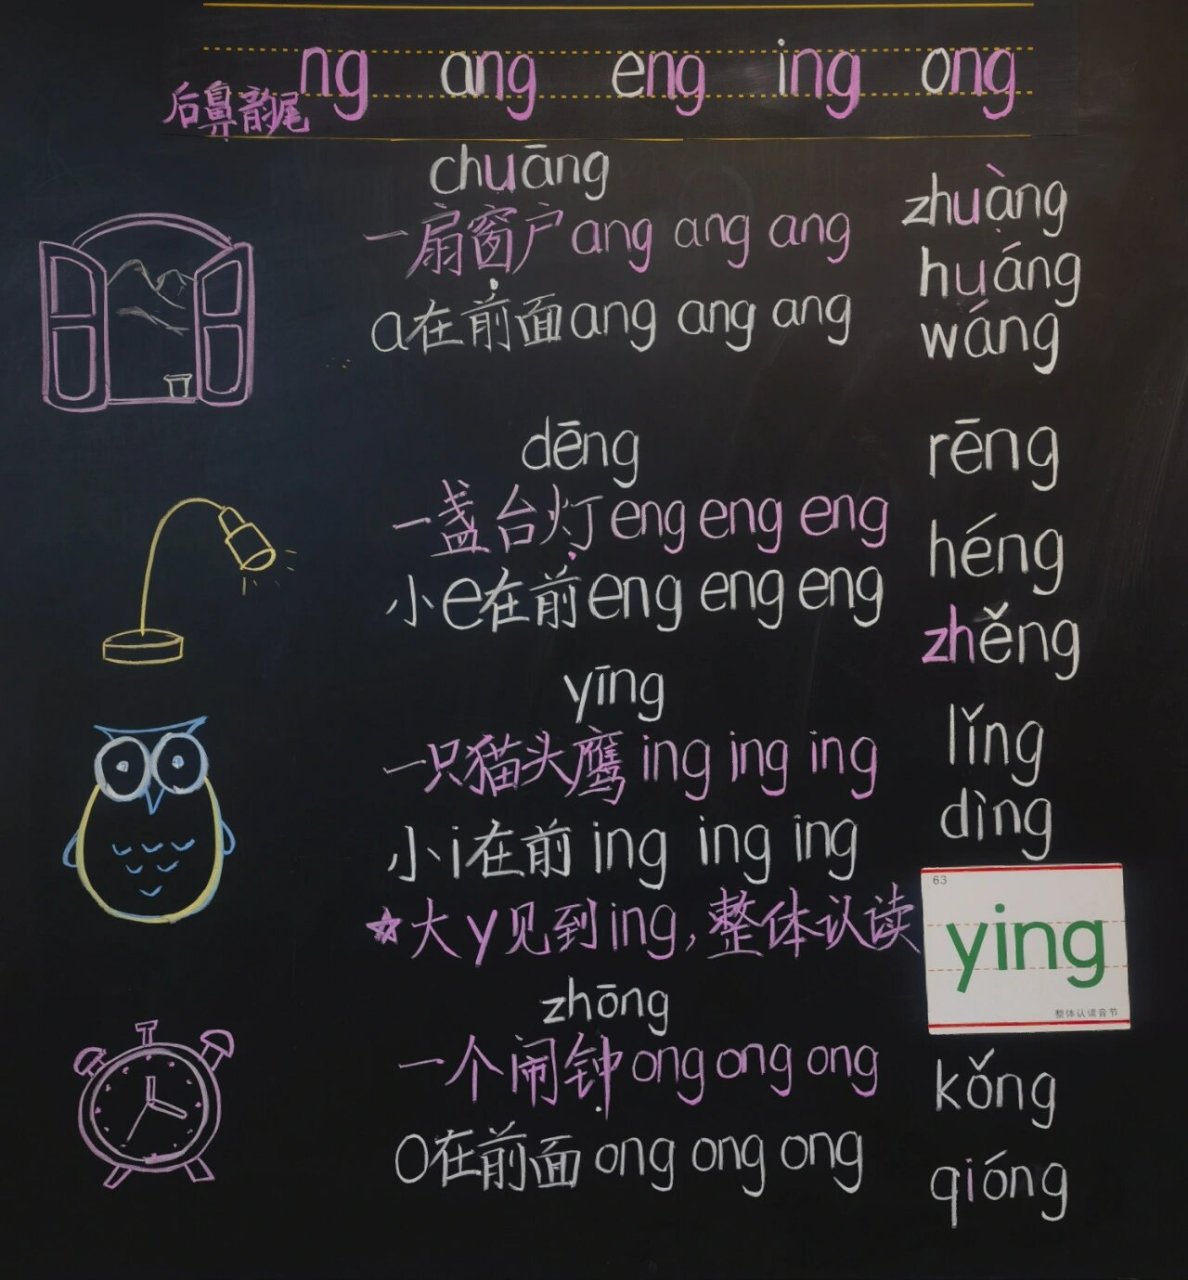 ng ang eng ing ong
后鼻韵尾
chuāng
一扇窗户ang ang ang
a在前面ang ang ang
zhuàng
huáng
wáng
dēng
一盏台灯eng eng eng
小e在前eng eng eng
rēng
héng
zhěng
yīng
一只猫头鹰 ing ing ing
小i在前 ing ing ing
☆大y见到ing,整体认读
lǐng
dìng
63
ying
整体认读音节
zhōng
一个闹钟ong ong ong
o在前面 ong ong ong
kǒng
qióng